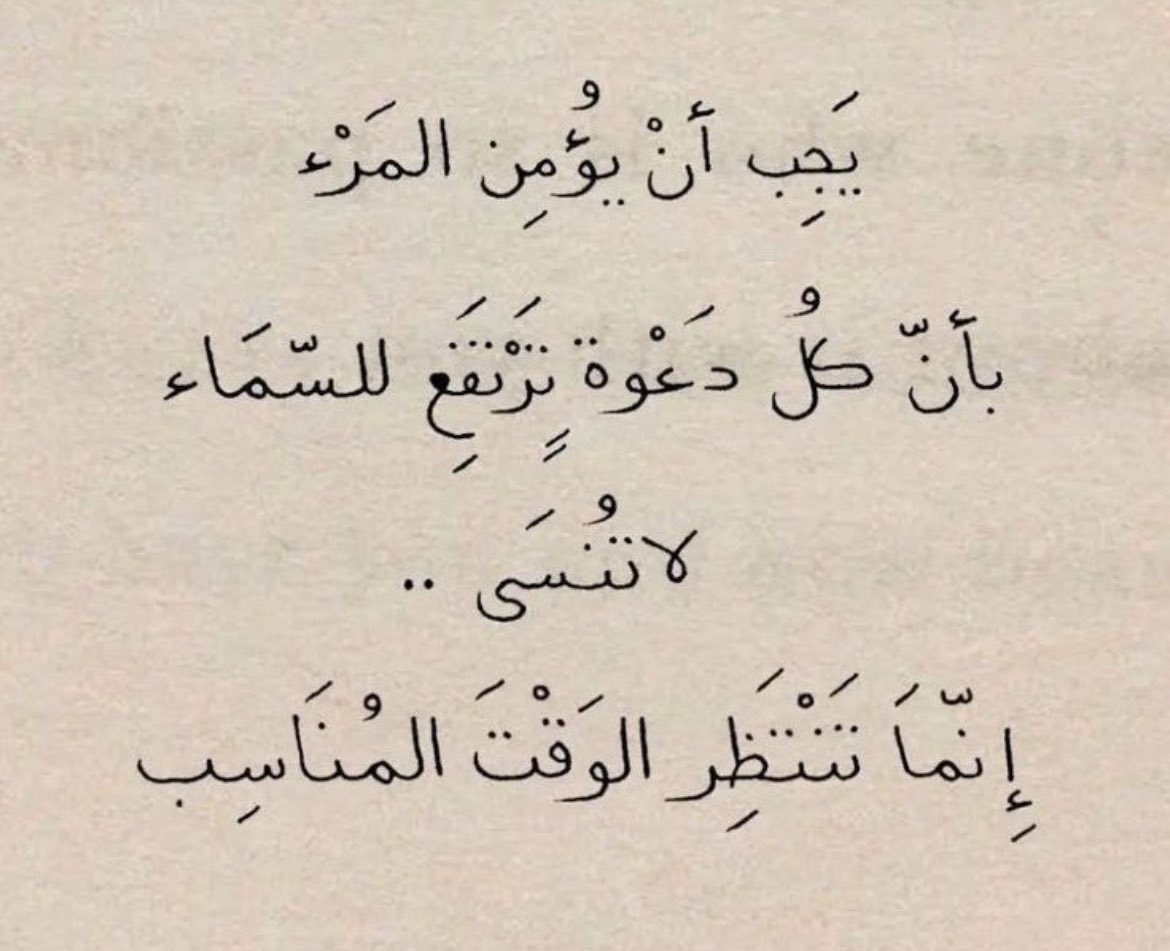 يَجِب أنْ يُؤمِن المَرْء
بأنّ كلُ دَعْوة تَرْتَفٍَعِ للسّمَاء
لا تُنسَى ..
إِنّمَا تَنْتَظِر الوَقْتَ المُنَاسِب